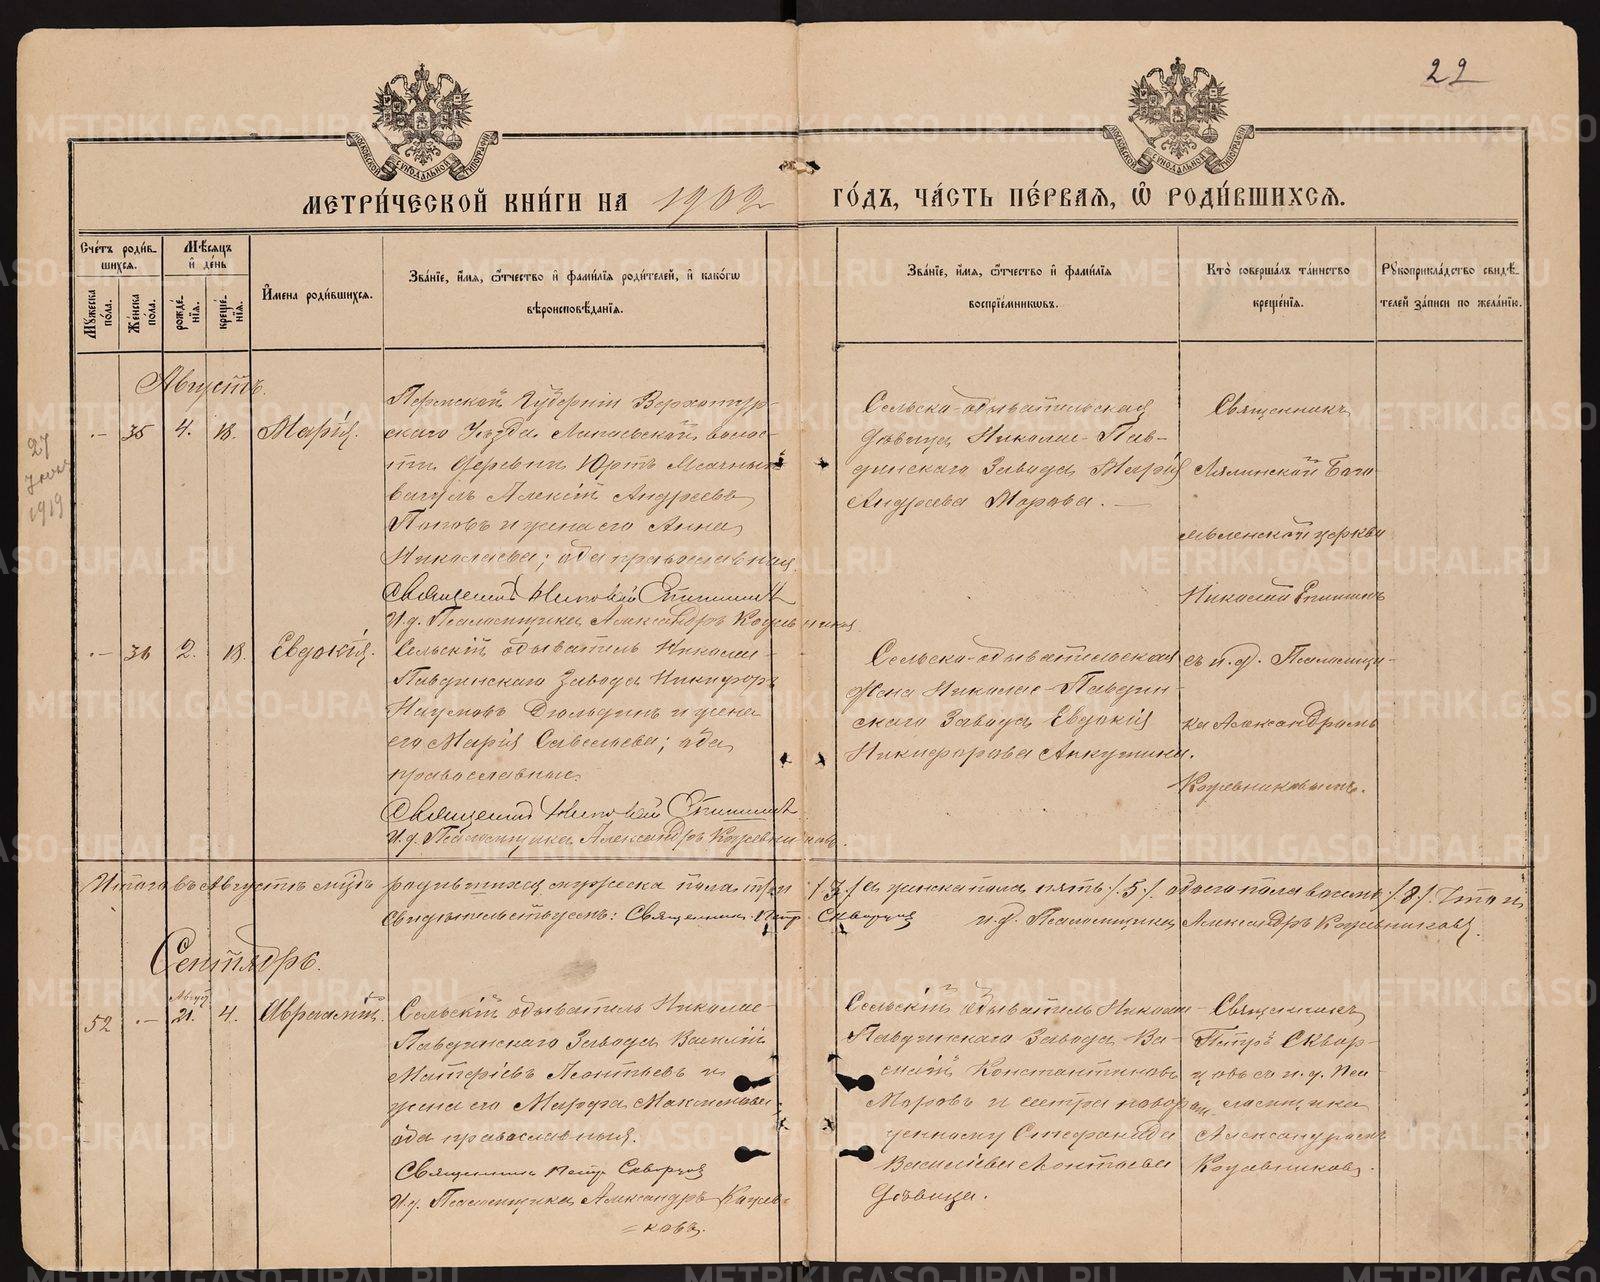 22
МОСКОВСКОЙ СѴНОДАЛЬНОЙ ТИПОГРАФІИ
МОСКОВСКОЙ СѴНОДАЛЬНОЙ ТИПОГРАФІИ
МЕТРИ́ЧЕСКОЙ КНИ́ГИ НА 1902 ГО́ДЪ, ЧА́СТЬ ПЕ́РВАЯ, Ѡ҆ РОДИ́ВШИХСЯ.
Сче́тъ роди́вшихся.
Му́жеска по́ла.
Же́нска по́ла.
Мѣ́сяцъ и҆ де́нь
рожде́нїя.
креще́нїя.
И҆мена роди́вшихся.
Зва́нїе, и҆́мя, ѻ҆́тчество и҆ фами́лїя роди́телей, и҆ како́гѡ
вѣроисповѣ́данїя.
Зва́нїе, и҆́мя, ѻ҆́тчество и҆ фами́лїя
воспрїе́мникѡвъ.
Кто̀ соверша́лъ та́инство
креще́нїя.
Рꙋкоприкла́дство свидѣ́-
телей за́писи по жела́нїю.
Августъ.
27
1919
— 35 4. 18. Марія.
Пермской Губерніи Верхотур-
скаго Уѣзда Лапаевской волос-
ти деревни Юртъ
вагулъ Алексій Андреевъ
Поповъ и жена его Анна
Николаева; оба православныя.
Священникъ Николай Епишинъ
И.д. Псаломщика Александръ Кожевниковъ
Сельско-обывательская
дѣвица Николае-Пав-
динскаго Завода Марія
Андреева Морова. —
Священникъ
Лялинской Бого-
явленской церкви
Николай Епишинъ
съ и.д. Псаломщи-
ка Александромъ
Кожевниковымъ.
— 36 2. 18. Евдокія.
Сельскій обыватель Николае-
Павдинскаго Завода Никифоръ
Наумовъ Дюльдинъ и жена
его Марія Савельева; оба
православные.
Священникъ Николай Епишинъ
И.д. Псаломщика Александръ Кожевниковъ.
Сельско-обывательская
жена Николае-Павдин-
скаго Завода Евдокія
Никифорова Анкушина.
Итого въ Августѣ мцѣ родившихся мужеска пола три /3/ а женска пола пять /5/. обоего пола восемь /8/. Что и
свидѣтельствуемъ: Священникъ Петръ Скворцовъ и.д. Псаломщика Александръ Кожевниковъ.
Сентябрь.
52 — Август. 21. 4. Авраамій.
Сельскій обыватель Николае-
Павдинскаго Завода Василій
Матѳіевъ Леонтьевъ и
жена его Марѳа Максимова;
оба православныя.
Священникъ Петръ Скворцовъ
И.д. Псаломщика Александръ Кожевни-
=ковъ.
Сельскій обыватель Николае-
Павдинскаго Завода Ва-
силій Константиновъ
Моровъ и сестра новорож-
денному Стефанида
Васильева Леонтьева
дѣвица.
Священникъ
Петръ Сквор-
цовъ съ и.д. Пса-
ломщика
Александромъ
Кожевниковымъ.
METRIKI.GASO-URAL.RU